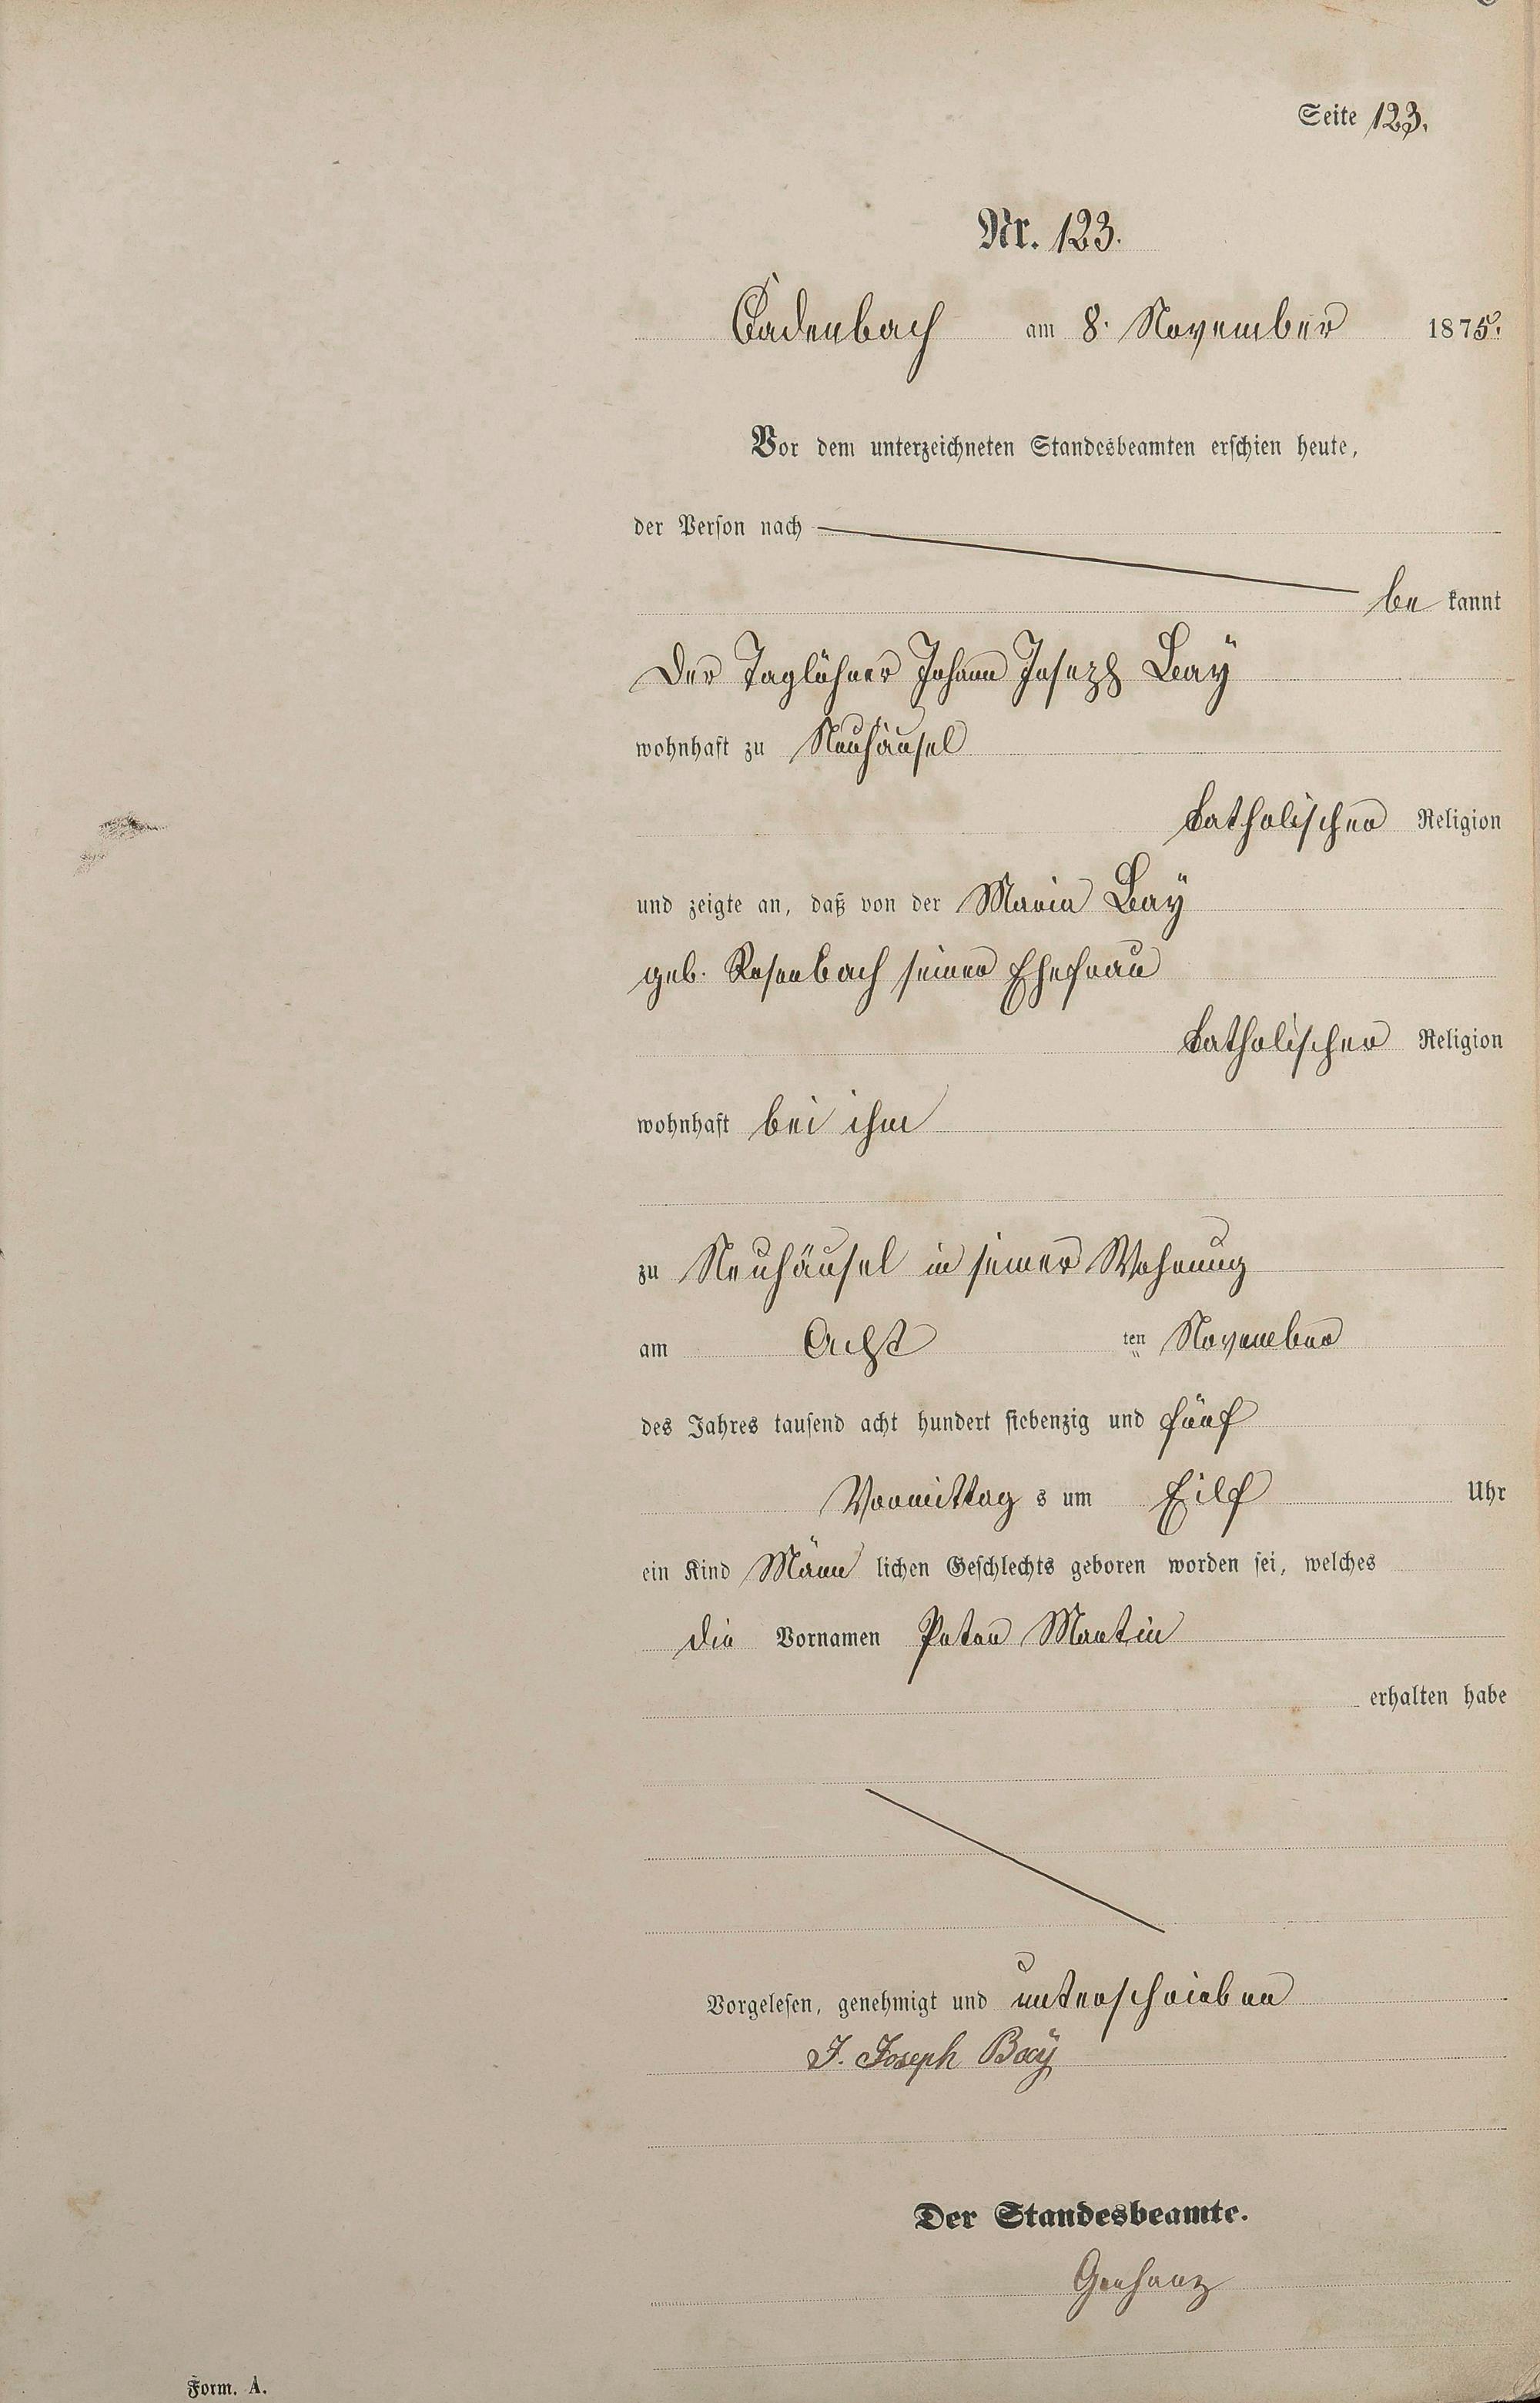 Seite 123.
Nr. 123.
Cadenbach am 8. November 1875.
Vor dem unterzeichneten Standesbeamten erschien heute,
der Person nach
be kannt
Der Taglöhner Johann Joseph Bay̎
wohnhaft zu Neuhäusel
katholischer Religion
und zeigte an, daß von der Maria Baÿ
geb. Rosenbach seiner Ehefrau
katholischer Religion
wohnhaft bei ihm
zu Neuhäusel in seiner Wohnung
am Acht ten November
des Jahres tausend acht hundert siebenzig und fünf
Vormittag s um Eilf Uhr
ein Kind Männ lichen Geschlechts geboren worden sei, welches
die Vornamen Peter Martin
erhalten habe
Vorgelesen, genehmigt und unterschrieben
J. Joseph Baÿ
Der Standesbeamte.
Gerhanz
Form. A.